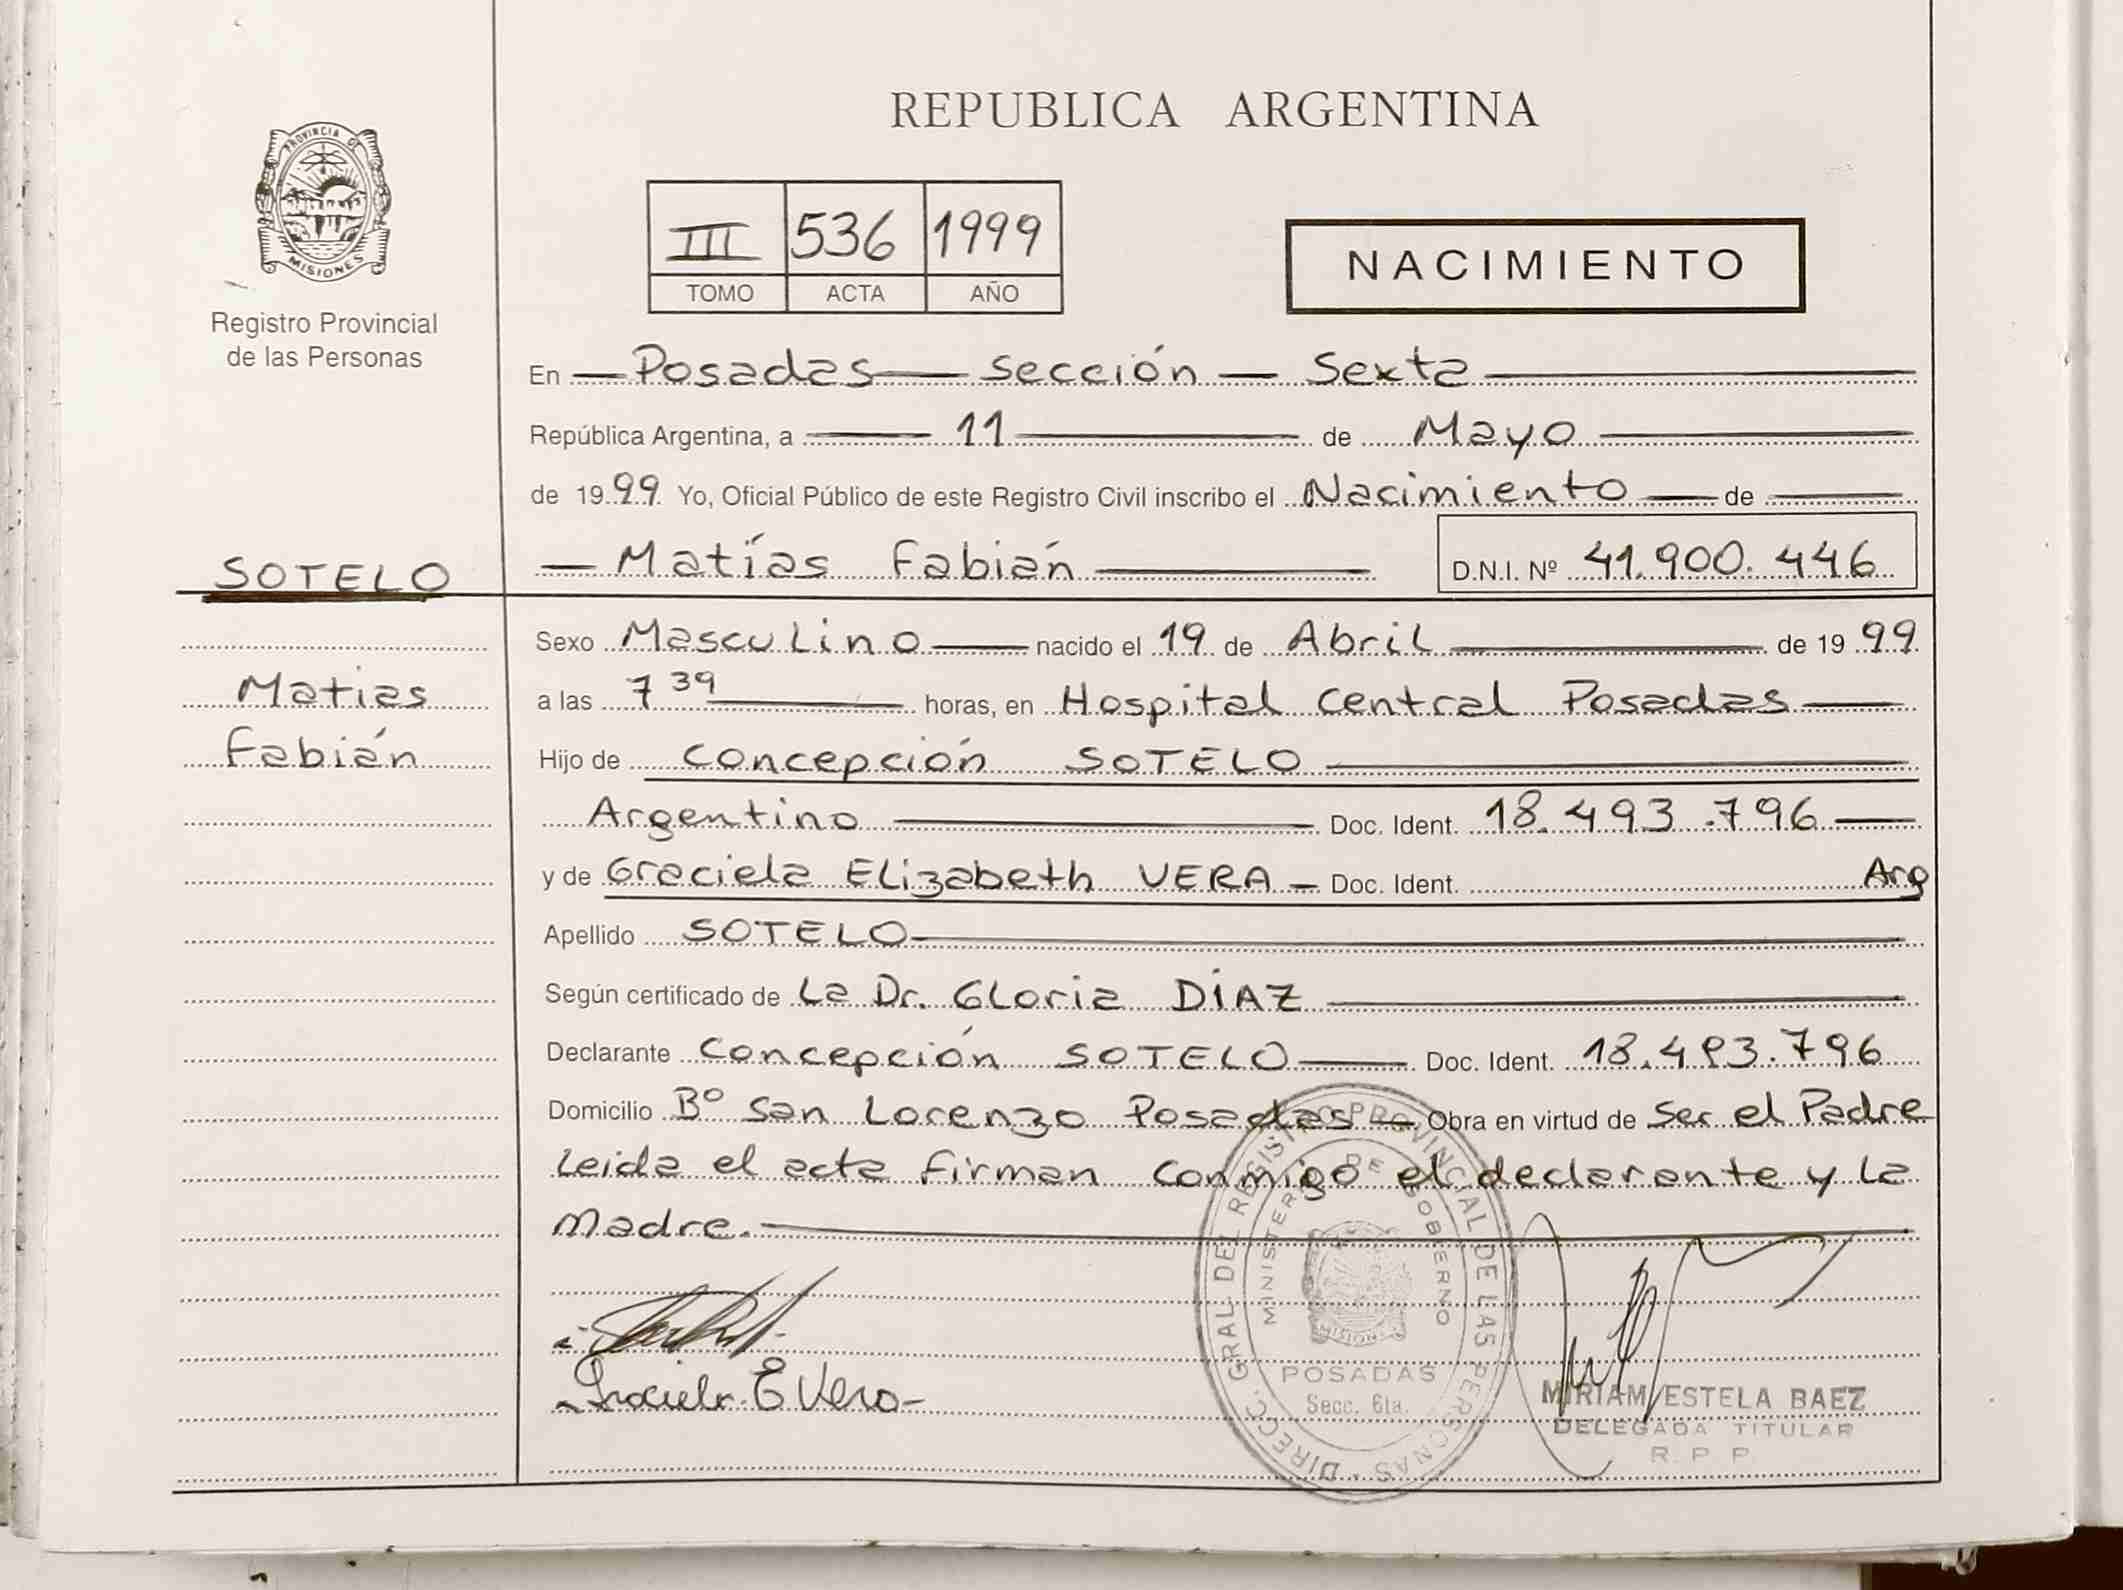 PROVINCIA DE
MISIONES
Registro Provincial
de las Personas
REPUBLICA ARGENTINA
III 536 1999
TOMO ACTA AÑO
NACIMIENTO
En Posadas sección Sexta
República Argentina, a 11 de Mayo
de 1999 Yo, Oficial Público de este Registro Civil inscribo el Nacimiento de
Matías Fabián D.N.I. Nº 41.900.446
SOTELO
Matias
Fabián
Sexo Masculino nacido el 19 de Abril de 1999
a las 7 39 horas, en Hospital Central Posadas
Hijo de Concepción SOTELO
Argentino Doc. Ident. 18.493.796
y de Graciela Elizabeth VERA Doc. Ident. Arg
Apellido SOTELO
Según certificado de La Dr. Gloria DÍAZ
Declarante Concepción SOTELO Doc. Ident. 18.493.796
Domicilio Bº San Lorenzo Posadas Obra en virtud de Ser el Padre
Leida el acta firman conmigo el declarante y la
Madre.
Graciela E Vera
DIRECC. GRAL. DEL REGISTRO PROVINCIAL DE LAS PERSONAS
MINISTERIO DE GOBIERNO
MISIONES
POSADAS
Secc. 6ta.
MIRIAM ESTELA BAEZ
DELEGADA TITULAR
R. P. P.